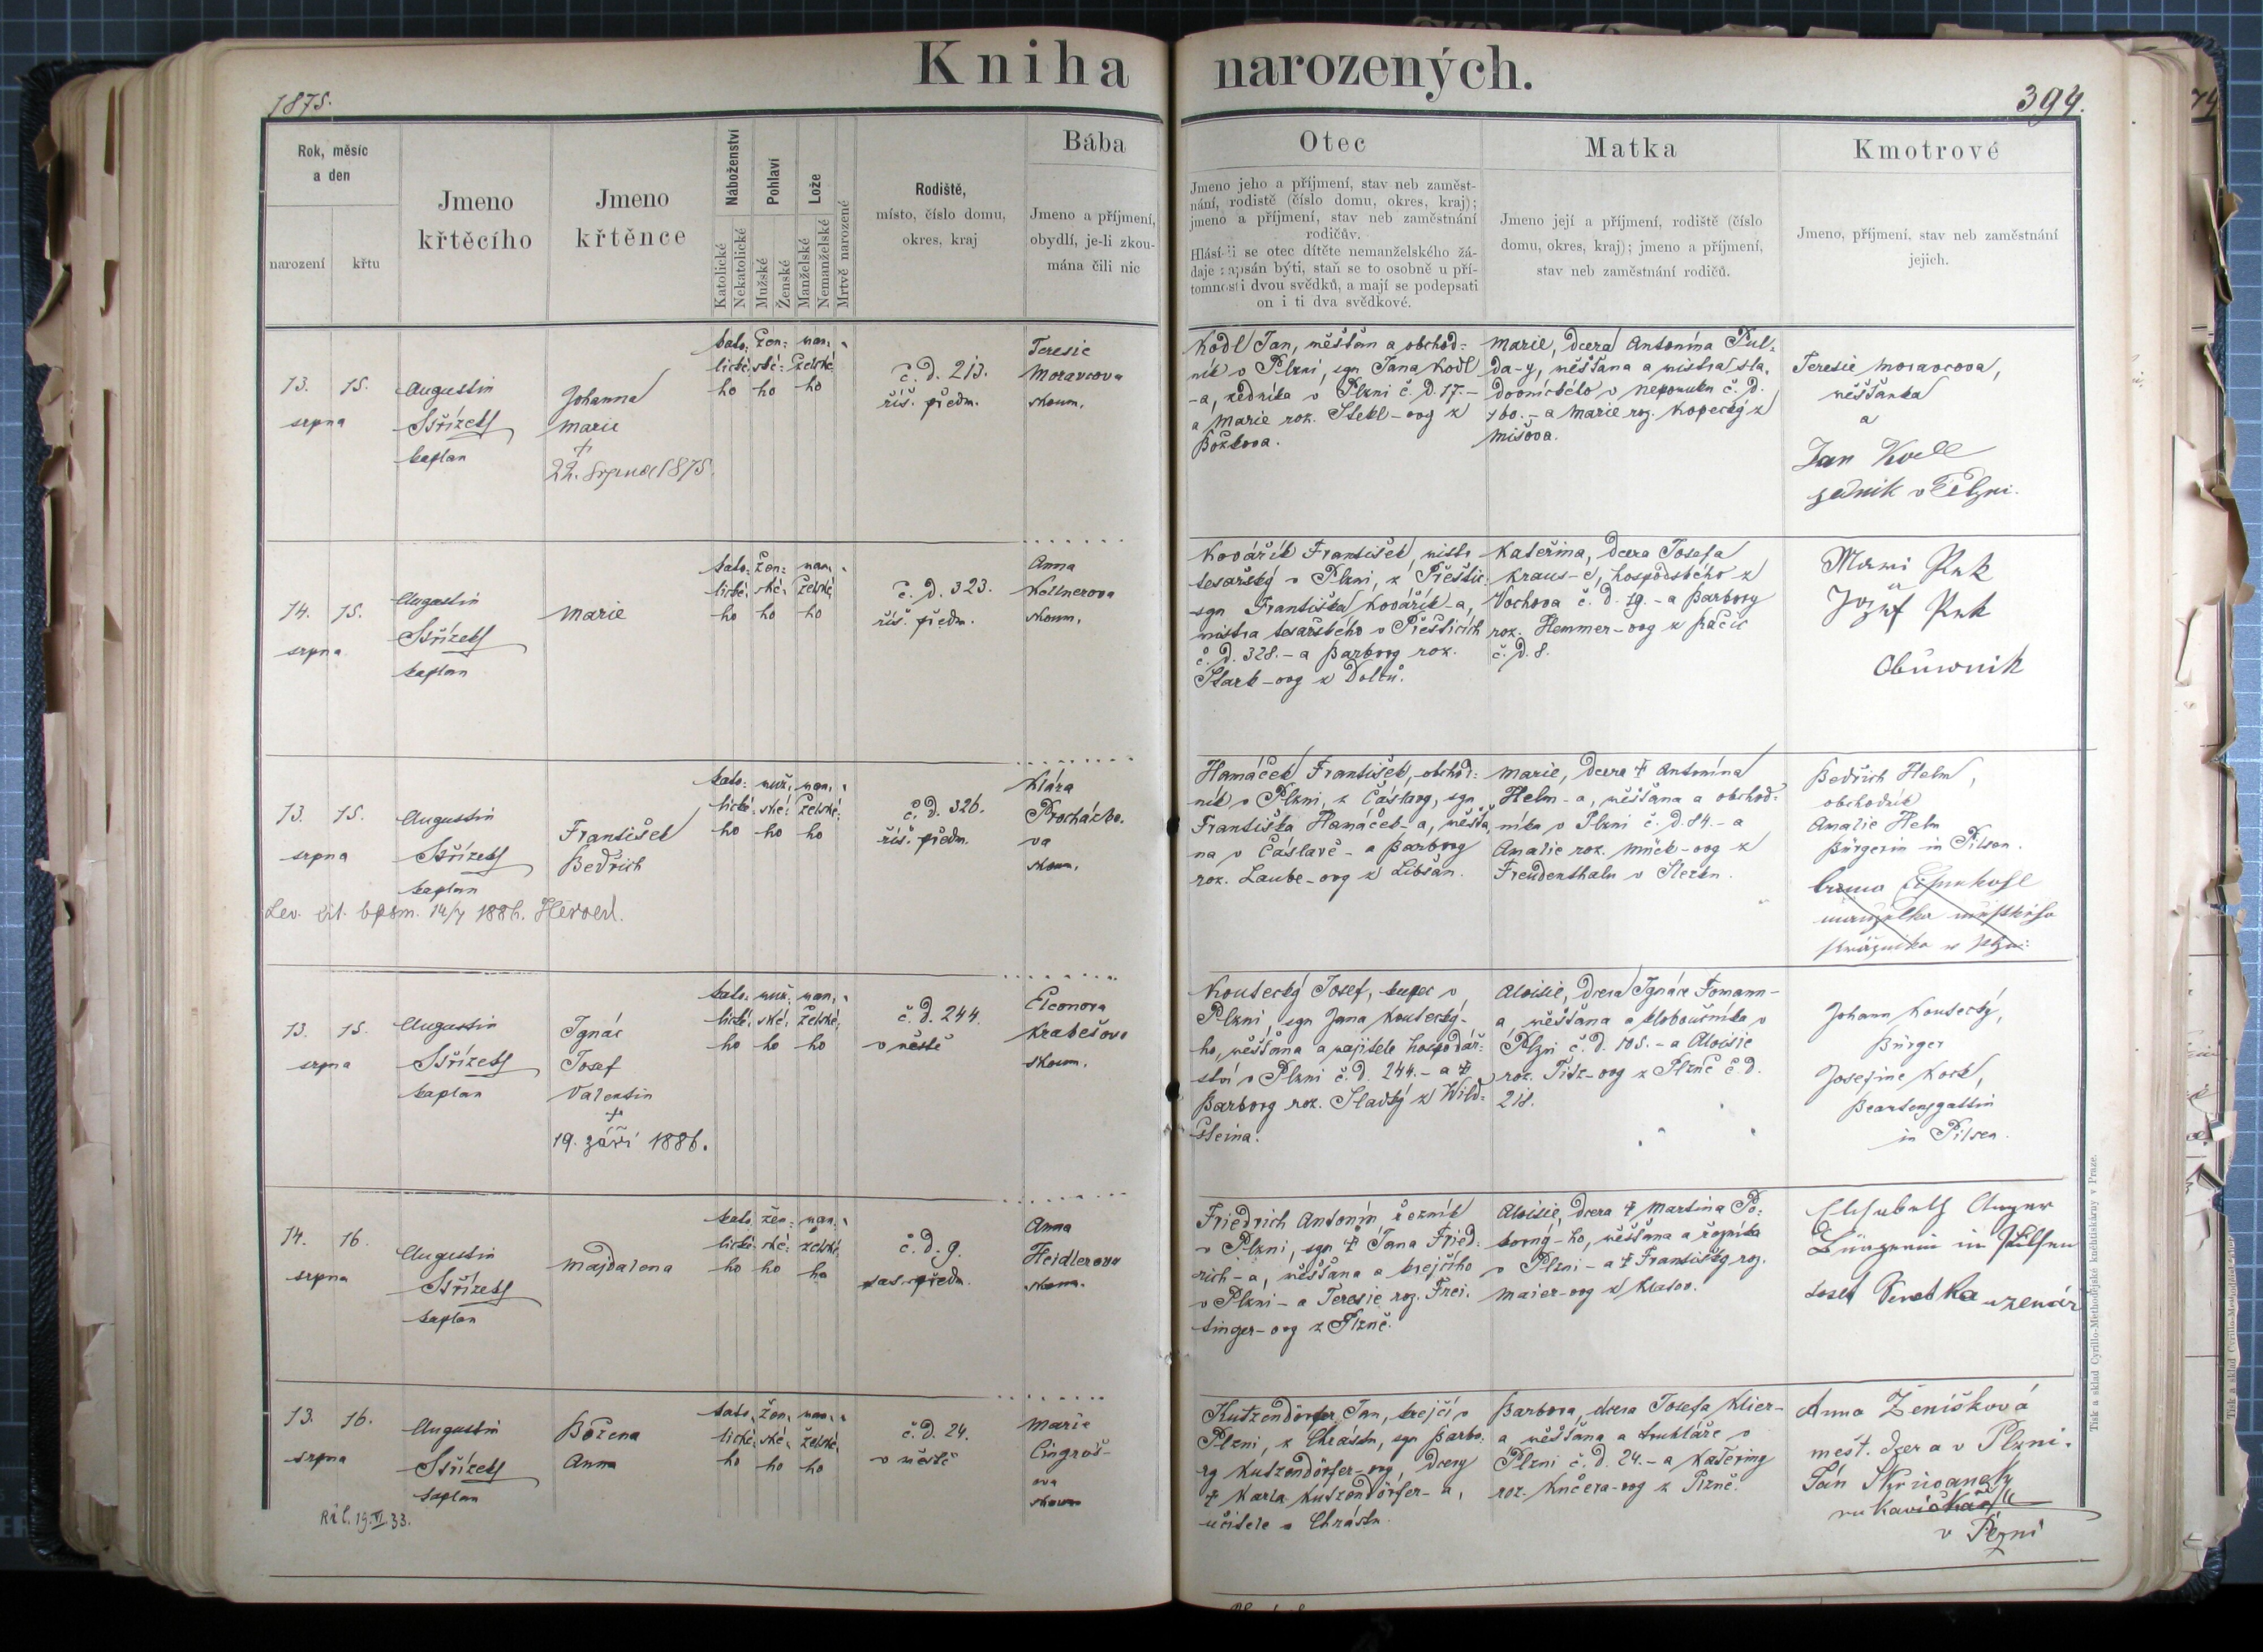 Kniha narozených.
1875.
394.
Rok, měsíc
a den
narození
křtu
Jmeno
křtěcího
Jmeno
křtěnce
Náboženství
Katolické
Nekatolické
Pohlaví
Mužské
Ženské
Lože
Manželské
Nemanželské
Mrtvě narozené
Rodiště,
místo, číslo domu,
okres, kraj
Bába
Jmeno a příjmení,
obydlí, je-li zkou-
mána čili nic
Otec
Jmeno jeho a příjmení, stav neb zaměst-
nání, rodistě (číslo domu, okres, kraj);
jmeno a příjmení, stav neb zaměstnání
rodičův.
Hlásí-li se otec dítěte nemanželského žá-
daje zapsán býti, staň se to osobně u pří-
tomnosti dvou svědků, a mají se podepsati
on i ti dva svědkové.
Matka
Jmeno její a příjmení, rodiště (číslo
domu, okres, kraj); jmeno a příjmení,
stav neb zaměstnání rodičů.
Kmotrové
Jmeno, příjmení, stav neb zaměstnání
jejich.
13. 15.
srpna
Augustin
Střízek
kaplan
Johanna
Marie
+
22. srpna 1875.
kato: žen: man:
lické: ské: želské
ho ho ho
č. d. 213.
říš. předm.
Teresie
Moravcova
zkoum.
Kodl Jan, měšťan a obchod=
ník v Plzni, syn Jana Kodl
-a, zedníka v Plzni č. d. 17.-
a Marie roz. Stekl-ovy z
Božkova.
Marie, dcera Antonína
da-y, měšťana a mistra sla,
dovnického v Nepomuku č. d.
160.- a Marie roz. Kopecký z
Mišova.
Teresie Moravcova,
měšťanka
a
Jan Kodl
zedník v Plzni.
14. 15.
srpna
Augustin
Střízek
kaplan
Marie
kato: žen: man:
lické: ské: želské
ho ho ho
č. d. 323.
říš. předm.
Anna
Kellnerova
zkoum.
Kovářík František, mistr
tesařský v Plzni, z Přeštic
syn Františka Kovářík-a,
mistra tesařského v Přešticích
č. d. 328.- a Barbory roz.
Stark-ovy z
Kateřina, dcera Josefa
Kraus-e, hospodského z
Vochova č. d. 19.- a Barbory
roz. Hemmer-ovy z Ráčic
č. d. 8.
a
Obuwnik
13. 15.
srpna
Augustin
Střízek
kaplan
František
Bedřich
kato: muž: man:
lické: ské: želské:
ho ho ho
č. d. 326.
říš. předm.
Klára
Procházko.
va
zkoum.
Hamáček František, obchod:
ník v Plzni, z Čáslavy, syn
Františka Hamáček-a, měšťa,
na v Čáslavě- a Barbory
roz. Laube-ovy z Libšan.
Marie, dcera † Antonína
Helm-a, měšťana a obchod:
níka v Plzni č. d. 84.- a
Amalie roz. Mück-ovy z
Freudenthalu v Slezku.
Bedřich Helm,
obchodník
Amalie Helm
Bürgerin in Pilsen.
13. 15.
srpna
Augustin
Střízek
kaplan
Ignác
Josef
Valentin
+
19. září 1886.
kato: muž: man:
lické: ské: želské:
ho ho ho
č. d. 244.
v městě
Eleonora
Krabešova
zkoum.
Koutecký Josef, kupec v
Plzni, syn Jana Koutecký-
ho, měšťana a majitele hospodář:
ství v Plzni č. d. 244.- a †
Barbory roz. Slavský z Wild=
šteina.
Aloisie, dcera Ignáce Fomann-
a, měšťana a kloboučníka v
Plzni č. d. 105.- a Aloisie
roz. Titz-ovy z Plzně č. d.
218.
Johann Koutecký,
Bürger
Josefine Kock,
Beamtensgattin
in Pilsen.
14. 16.
srpna
Augustin
Střízek
kaplan
Majdalena
kato: žen: man:
lické: ské: želské
ho ho ho
č. d. 9.
sas. předm.
Anna
Heidlerova
zkoum.
Friedrich Antonín, řezník
v Plzni, syn † Jana Fried-
rich-a, měšťana a krejčího
v Plzni- a Teresie roz. Frei.
singer-ovy z Plzně.
Aloisie, dcera † Martina Po:
korný-ho, měšťana a řezníka
v Plzni- a † Františky roz.
Maier-ovy z Klatov.
Elisabeth Anger
Bürgerin in Pilsen
uzenář
13. 16.
srpna
Augustin
Střízek
kaplan
Božena
Anna
kato: žen: man:
lické: ské: želské
ho ho ho
č. d. 24.
v městě
Marie
Cingroš-
ova
zkoum
Kutzendörfer Jan, krejčí v
Plzni, z Chrástu, syn Barbo:
ry Kutzendörfer-ovy, dcery
† Karla Kutzendörfer-a,
učitele v Chrástu.
Barbora, dcera Josefa Klier-
a měšťana a truhláře v
Plzni č. d. 24.- a Kateřiny
roz. Kučera-ovy z Plzně.
Anna Ženíšková
měšt. dcera v Plzni.
v Plzni
Tisk a sklad Cyrillo-Methodějské knihtiskárny v Praze.